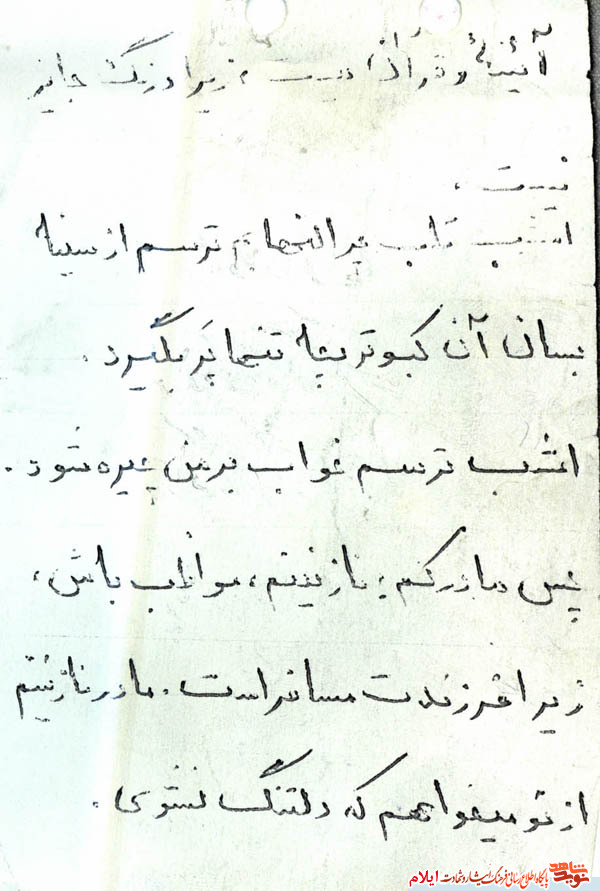 آئینهٔ و قرآن نیست ، زیرا درنگ جایز
نیست .
امشب قلب پر التهابم ترسم از سینه
بسان آن کبوتر بچه تنها پَر بگیرد .
امشب ترسم خواب بر من چیره شود .
پس مادرکم ، نازنینم ، مواظب باش ،
زیرا فرزندت مسافر است . مادر نازنینم
از تو میخواهم که دلتنگ نشوی .
نوید شاهد
پایگاه اطلاع رسانی فرهنگ ایثار و شهادت ایلام